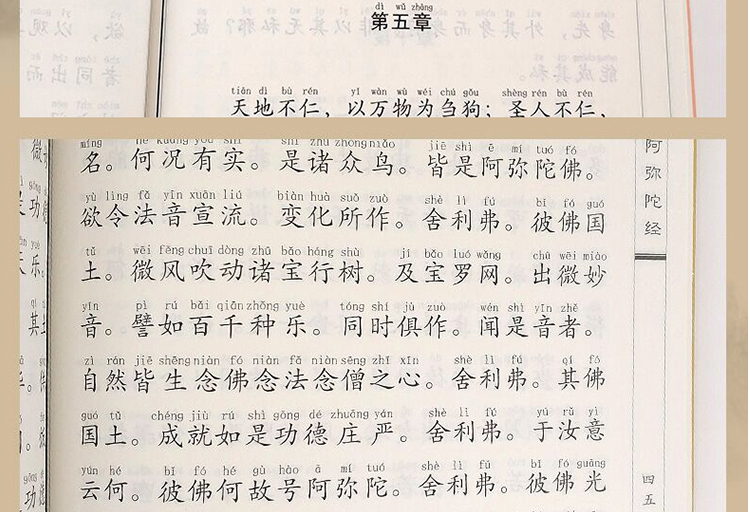 dì wǔ zhāng
第五章
tiān dì bù rén yǐ wàn wù wéi chú gǒu shèng rén bù rén
天地不仁，以万物为刍狗；圣人不仁，
名。何况有实。是诸众鸟。皆是阿弥陀佛。
yù lìng fǎ yīn xuān liú biàn huà suǒ zuò shè lì fú bǐ fó guó
欲令法音宣流。变化所作。舍利弗。彼佛国
tǔ wēi fēng chuī dòng zhū bǎo háng shù jí bǎo luó wǎng chū wēi miào
土。微风吹动诸宝行树。及宝罗网。出微妙
yīn pì rú bǎi qiān zhǒng yuè tóng shí jù zuò wén shì yīn zhě
音。譬如百千种乐。同时俱作。闻是音者。
zì rán jiē shēng niàn fó niàn fǎ niàn sēng zhī xīn shè lì fú qí fó
自然皆生念佛念法念僧之心。舍利弗。其佛
guó tǔ chéng jiù rú shì gōng dé zhuāng yán shè lì fú yú rǔ yì
国土。成就如是功德庄严。舍利弗。于汝意
yún hé bǐ fó hé gù hào ā mí tuó shè lì fú bǐ fó guāng
云何。彼佛何故号阿弥陀。舍利弗。彼佛光
阿弥陀经
四五